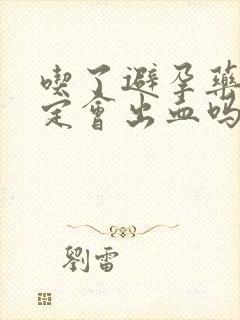 喫了避孕藥
定會出血嗎
劉雷